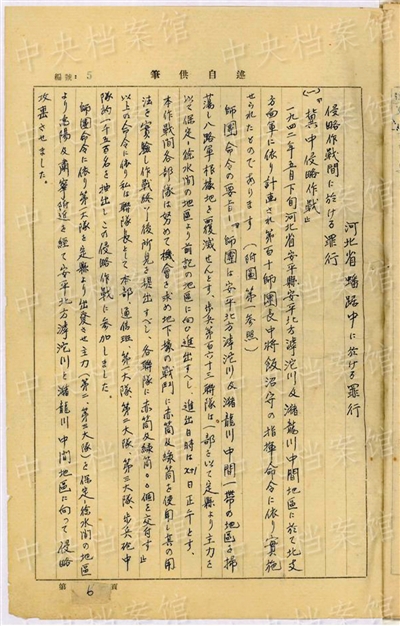 中央档案馆
編號: 5
述自供筆
河北省蟠踞中に於ける罪行
侵略作戰間に於ける罪行
(一)『冀中侵略作戰』
一九四二年五月下旬河北省安平縣安平北方滹沱川及瀦龍川中間地區に於て北支
方面軍に依り計画され第百十師團長中將飯沼守の指揮命令に依り實施
せられたものであります(附圖第一参照)
師團命令の要旨『師團は安平北方滹沱川及瀦龍川中間一帶の地區を掃
蕩し八路軍根據地を覆滅せんとす、歩兵第百六十三聯隊は一部を以て定縣より主力を
以て保定―徐水間の地區より前記の地區に向ひ進出すべし 進出日時は 日正午とす、
本作戰間各部隊は努めて機會を求め地下壕の戰鬥に赤筒及緑筒を使用し其の用
法を實驗し作戰終了後所見を提出すべし、各聯隊に赤筒及緑筒 個を交付す』
以上の命令に依り私は聯隊長として本部、通信班、第一大隊、第二大隊、第三大隊、歩兵砲中
隊約一千五百名を抽出しこの侵略作戰に参加しました。
師團命令に依り第一大隊を定縣より出發させ主力(第二、第三大隊)を保定―徐水間の地區
より高陽及肅寧附近を経て安平北方滹沱川と瀦龍川中間地區に向って侵略
攻撃させました。
第 6 頁